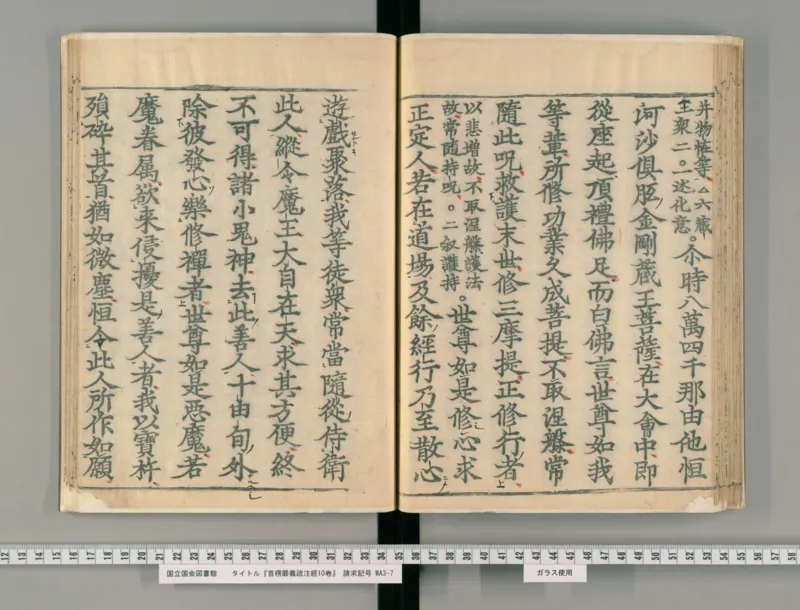 并物怪等。△六藏
王衆二。一述化意
。尒時八萬四千那由他恒
河沙俱胝金剛藏王菩薩在大會中即
從座起頂禮佛足而白佛言世尊如我
等輩所修功業久成菩提不取涅槃常
隨此呪救護末世修三摩提正修行者
以悲增故不取涅槃護法
故常隨持呪。二叙護持
。世尊如是修心求
正定人若在道場及餘經行乃至散心
遊戲聚落我等徒衆常當隨從侍衛
此人縱令魔王大自在天求其方便終
不可得諸小鬼神去此善人十由旬外
除彼發心樂修禪者世尊如是惡魔若
魔眷属欲来侵擾是善人者我以寶杵
殞碎其首猶如微塵恒令此人所作如願
12 13 14 15 16 17 18 19 20 21 22 23 24 25 26 27 28 29 30 31 32 33 34 35 36 37 38 39 40 41 42 43 44 45 46 47 48 49 50 51 52 53 54 55 56 57 58
国立国会図書館 タイトル『首楞嚴義疏注經10巻』 請求記号 WA3-7
ガラス使用